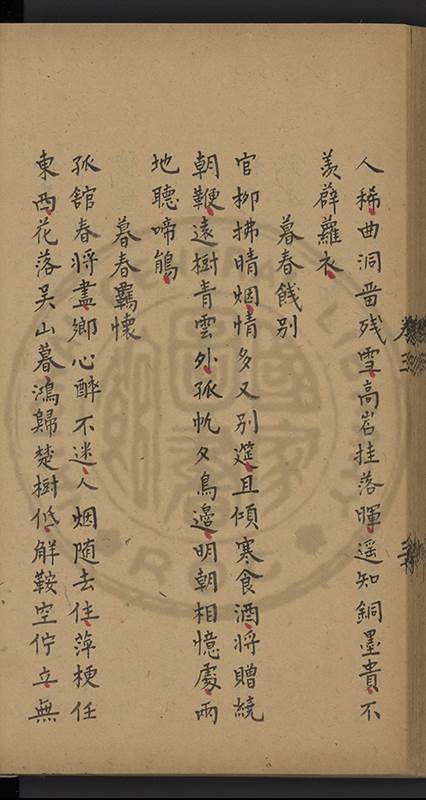 人稀曲洞畱残雪高岩挂落暉遥知銅墨貴不
羡薜蘿衣
暮春餞别
官柳拂晴烟情多又别筵且傾寒食酒将贈繞
朝鞭遠樹青雲外孤帆夕鳥邊明朝相憶處雨
地聽啼鵑
暮春羈懷
孤舘春将盡鄉心醉不迷人烟随去住萍梗任
東西花落吴山暮鴻歸楚樹低解鞍空佇立無